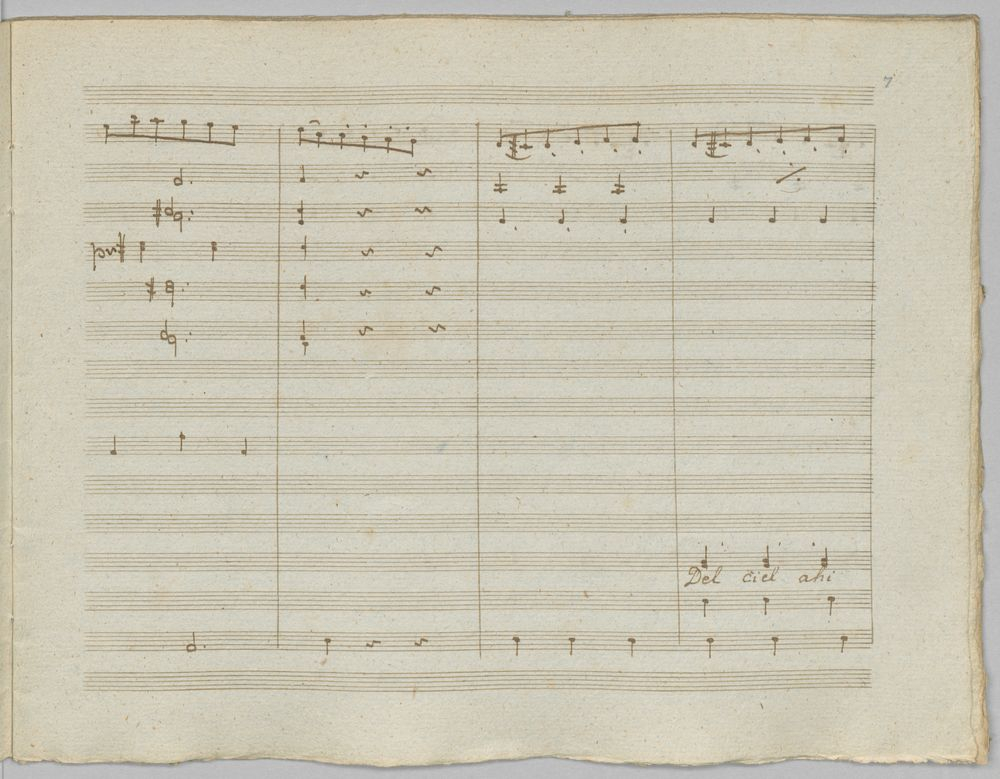 7
Del ciel ahi